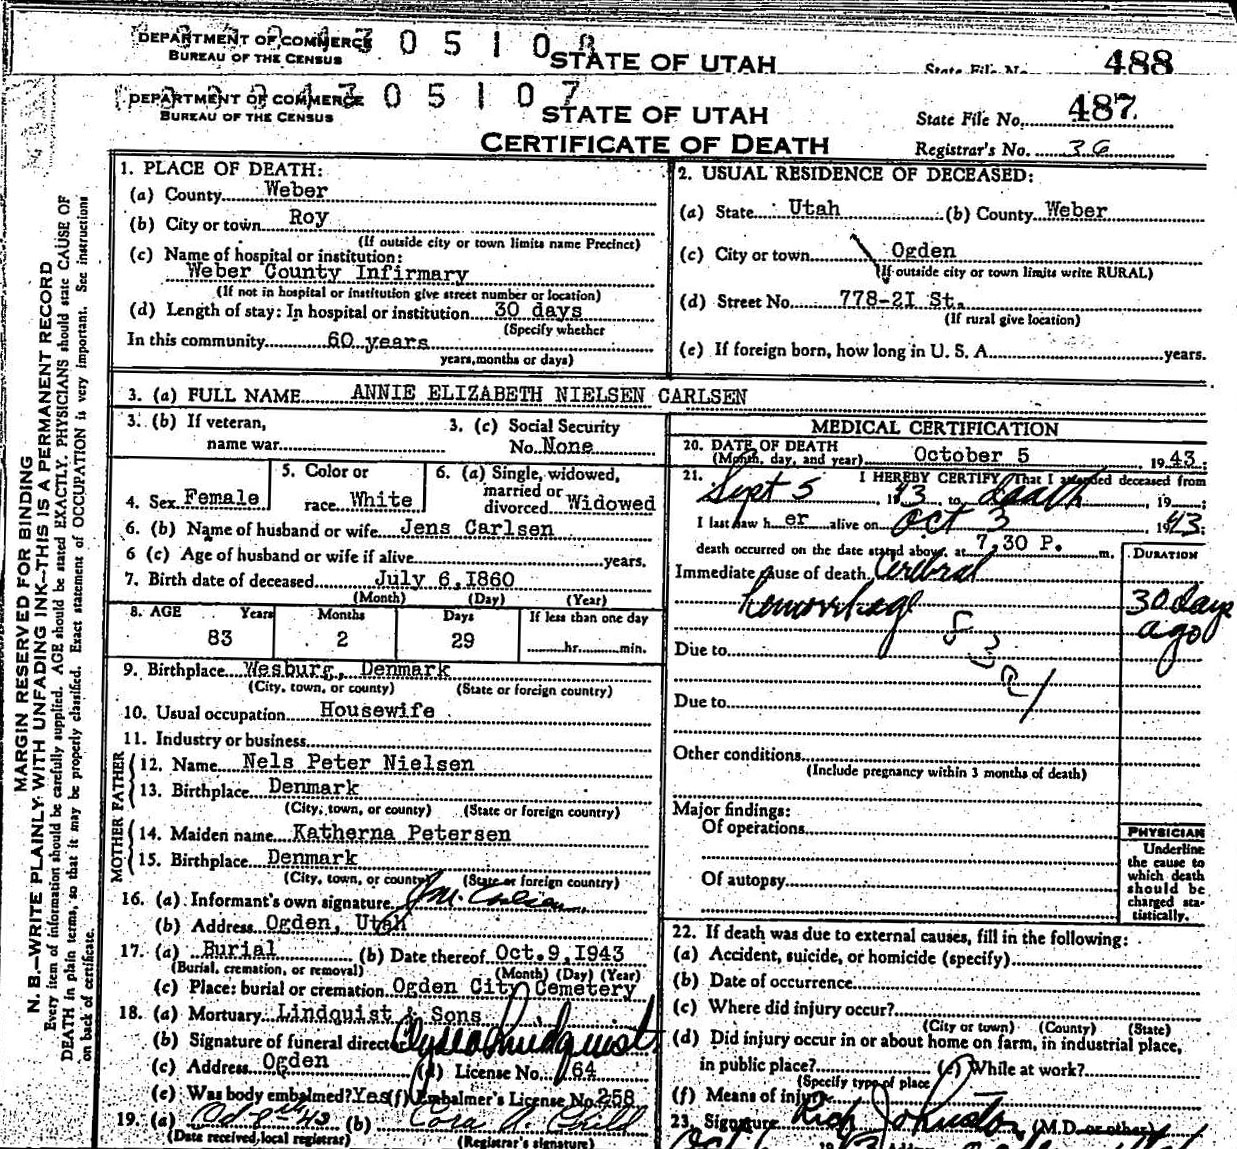 DEPARTMENT OF COMMERCE
BUREAU OF THE CENSUS
STATE OF UTAH
State File No. 488
DEPARTMENT OF COMMERCE
BUREAU OF THE CENSUS
STATE OF UTAH
CERTIFICATE OF DEATH
State File No. 487
Registrar's No. 36
MARGIN RESERVED FOR BINDING
N. B.—WRITE PLAINLY WITH UNFADING INK—THIS IS A PERMANENT RECORD
Every item of information should be carefully supplied. AGE should be stated EXACTLY. PHYSICIANS should state CAUSE OF
DEATH in plain terms, so that it may be properly classified. Exact statement of OCCUPATION is very important. See instructions
on back of certificate.
1. PLACE OF DEATH:
(a) County Weber
(b) City or town Roy
(If outside city or town limits name Precinct)
(c) Name of hospital or institution:
Weber County Infirmary
(If not in hospital or institution give street number or location)
(d) Length of stay: In hospital or institution 30 days
(Specify whether
In this community 60 years
years, months or days)
2. USUAL RESIDENCE OF DECEASED:
(a) State Utah (b) County Weber
(c) City or town Ogden
(If outside city or town limits write RURAL)
(d) Street No. 778-21 St.
(If rural give location)
(e) If foreign born, how long in U. S. A. years.
3. (a) FULL NAME ANNIE ELIZABETH NIELSEN CARLSEN
3. (b) If veteran,
name war
3. (c) Social Security
No. None
4. Sex Female
5. Color or
race White
6. (a) Single, widowed,
married or
divorced Widowed
6. (b) Name of husband or wife Jens Carlsen
6 (c) Age of husband or wife if alive years.
7. Birth date of deceased July 6, 1860
(Month) (Day) (Year)
8. AGE Years Months Days If less than one day
83 2 29 hr. min.
9. Birthplace Wesburg, Denmark
(City, town, or county) (State or foreign country)
10. Usual occupation Housewife
11. Industry or business
FATHER
12. Name Nels Peter Nielsen
13. Birthplace Denmark
(City, town, or county) (State or foreign country)
MOTHER
14. Maiden name Katherna Petersen
15. Birthplace Denmark
(City, town, or county) (State or foreign country)
16. (a) Informant's own signature
(b) Address Ogden, Utah
17. (a) Burial (b) Date thereof Oct. 9, 1943
(Burial, cremation, or removal) (Month) (Day) (Year)
(c) Place: burial or cremation Ogden City Cemetery
18. (a) Mortuary Lindquist & Sons
(b) Signature of funeral director Lindquist
(c) Address Ogden (d) License No. 64
(e) Was body embalmed? Yes (f) Embalmer's License No. 258
19. (a) Oct 8th 43 (b) Cora A. Child
(Date received, local registrar) (Registrar's signature)
MEDICAL CERTIFICATION
20. DATE OF DEATH
(Month, day, and year) October 5, 1943;
21. I HEREBY CERTIFY, That I attended deceased from
Sept 5, 1943 to Death, 19 ;
I last saw her alive on Oct 3 1943;
death occurred on the date stated above, at 7,30 P. m.
DURATION
Immediate cause of death Cerebral
hemorrhage 30 days
ago
Due to
Due to
Other conditions
(Include pregnancy within 3 months of death)
Major findings:
Of operations
Of autopsy
PHYSICIAN
Underline
the cause to
which death
should be
charged sta-
tistically.
22. If death was due to external causes, fill in the following:
(a) Accident, suicide, or homicide (specify)
(b) Date of occurrence
(c) Where did injury occur?
(City or town) (County) (State)
(d) Did injury occur in or about home on farm, in industrial place,
in public place? (e) While at work?
(Specify type of place
(f) Means of injury
23. Signature Rich Johnston (M.D. or other)